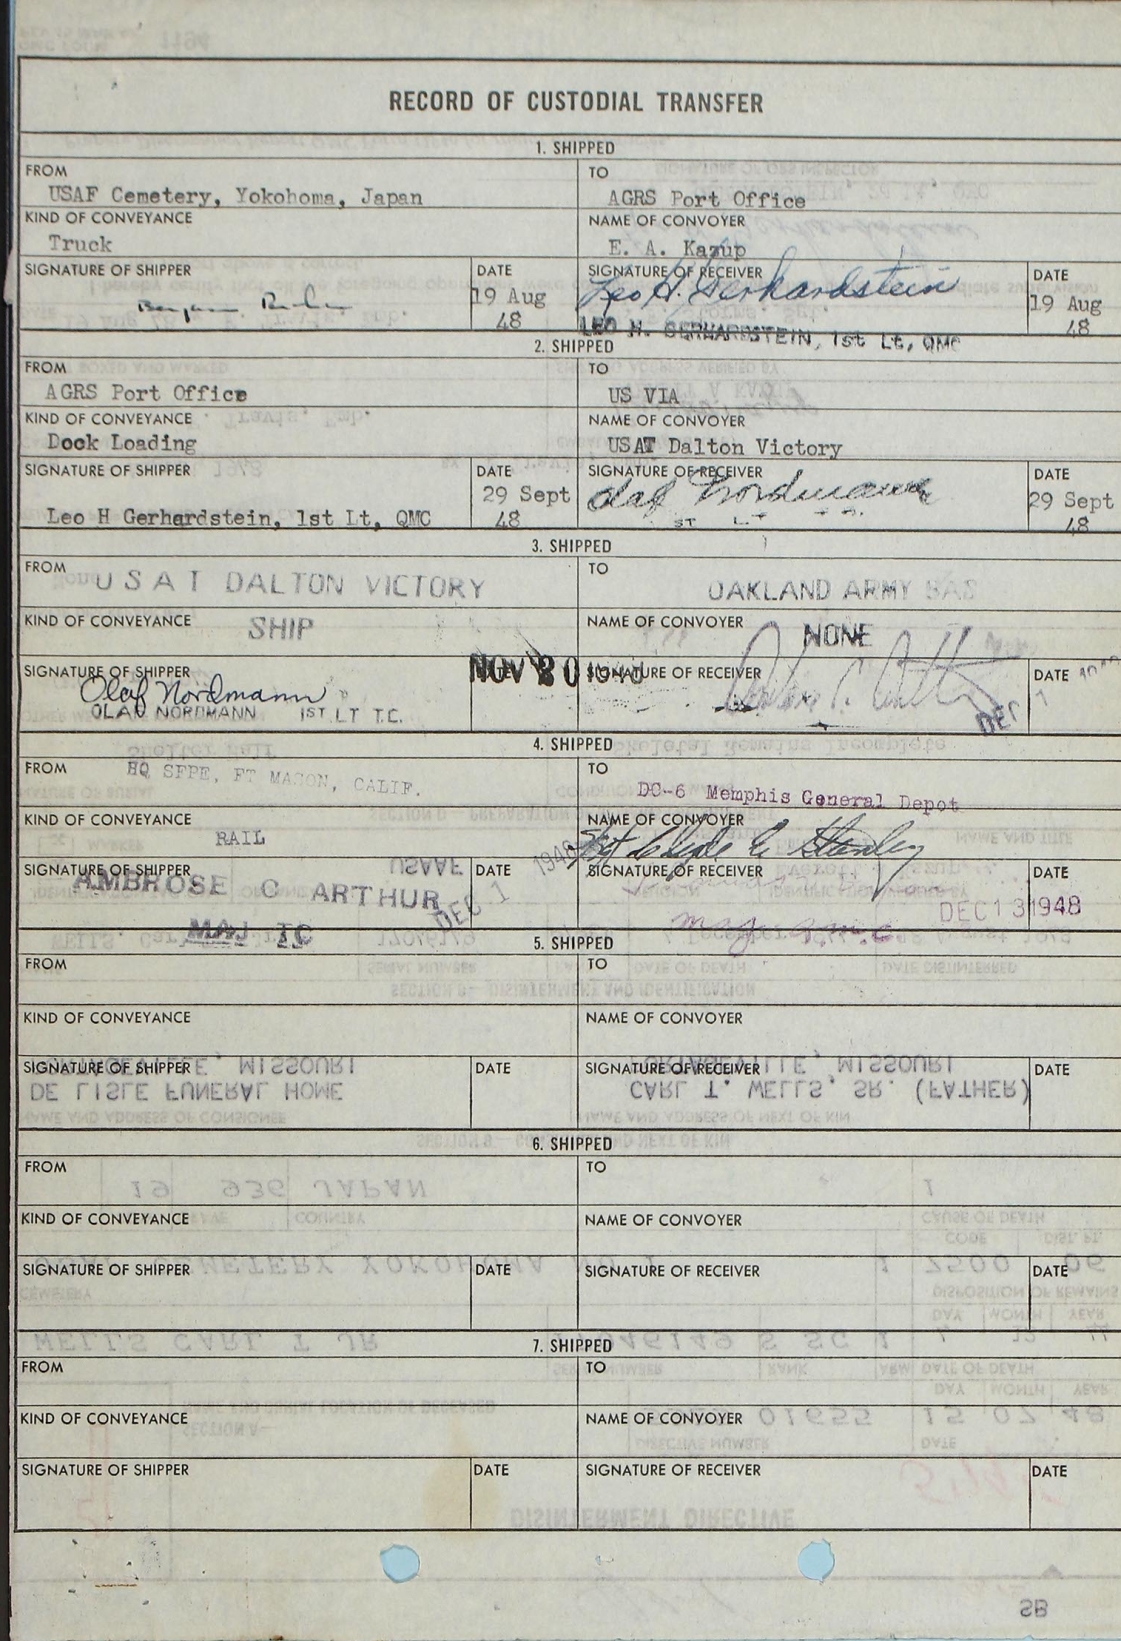 RECORD OF CUSTODIAL TRANSFER
1. SHIPPED
FROM
USAF Cemetery, Yokohoma, Japan
TO
AGRS Port Office
KIND OF CONVEYANCE
Truck
NAME OF CONVOYER
E. A. Kazup
SIGNATURE OF SHIPPER
DATE
19 Aug
48
SIGNATURE OF RECEIVER
Leo H. Gerhardstein
LEO H. GERHARDSTEIN, 1st Lt, QMC
DATE
19 Aug
48
2. SHIPPED
FROM
AGRS Port Office
TO
US VIA
KIND OF CONVEYANCE
Dock Loading
NAME OF CONVOYER
USAT Dalton Victory
SIGNATURE OF SHIPPER
Leo H Gerhardstein, 1st Lt, QMC
DATE
29 Sept
48
SIGNATURE OF RECEIVER
Olaf Nordmann
DATE
29 Sept
48
3. SHIPPED
FROM
USAT DALTON VICTORY
TO
OAKLAND ARMY BAS
KIND OF CONVEYANCE
SHIP
NAME OF CONVOYER
NONE
SIGNATURE OF SHIPPER
Olaf Nordmann
OLAF NORDMANN 1ST LT T.C.
NOV 30 1948
SIGNATURE OF RECEIVER
DATE
DEC 1
4. SHIPPED
FROM
HQ SFPE, FT MASON, CALIF.
TO
DC-6 Memphis General Depot
KIND OF CONVEYANCE
RAIL
NAME OF CONVOYER
Stanley
SIGNATURE OF SHIPPER
AMBROSE C ARTHUR
MAJ TC
DATE
DEC 1 1948
SIGNATURE OF RECEIVER
DATE
DEC 13 1948
5. SHIPPED
FROM
TO
KIND OF CONVEYANCE
NAME OF CONVOYER
SIGNATURE OF SHIPPER
DATE
SIGNATURE OF RECEIVER
DATE
6. SHIPPED
FROM
TO
KIND OF CONVEYANCE
NAME OF CONVOYER
SIGNATURE OF SHIPPER
DATE
SIGNATURE OF RECEIVER
DATE
7. SHIPPED
FROM
TO
KIND OF CONVEYANCE
NAME OF CONVOYER
SIGNATURE OF SHIPPER
DATE
SIGNATURE OF RECEIVER
DATE